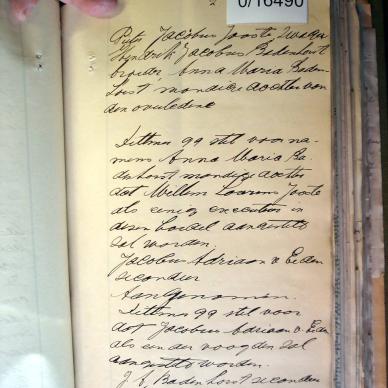 0/16490
Piet Jacobus Jooste, Zwager
Hendrik Jacobus Badenhorst
broeder, Anna Maria Baden
horst mondige dochter van
den overledene
Dittmer 99 stel voor na-
mens Anna Maria Ba-
denhorst mondige dochter
dat Willem Lourens Jooste
als eenig executeur in
dezen boedel aangesteld
zal worden,
Jacobus Adriaan v. Eeden
secondeer
Aangenomen.
Dittmer 99 stel voor
dat Jacobus Adriaan v. Eeden
als een der voogden zal
aangesteld worden.
J. J. Badenhorst secondeer